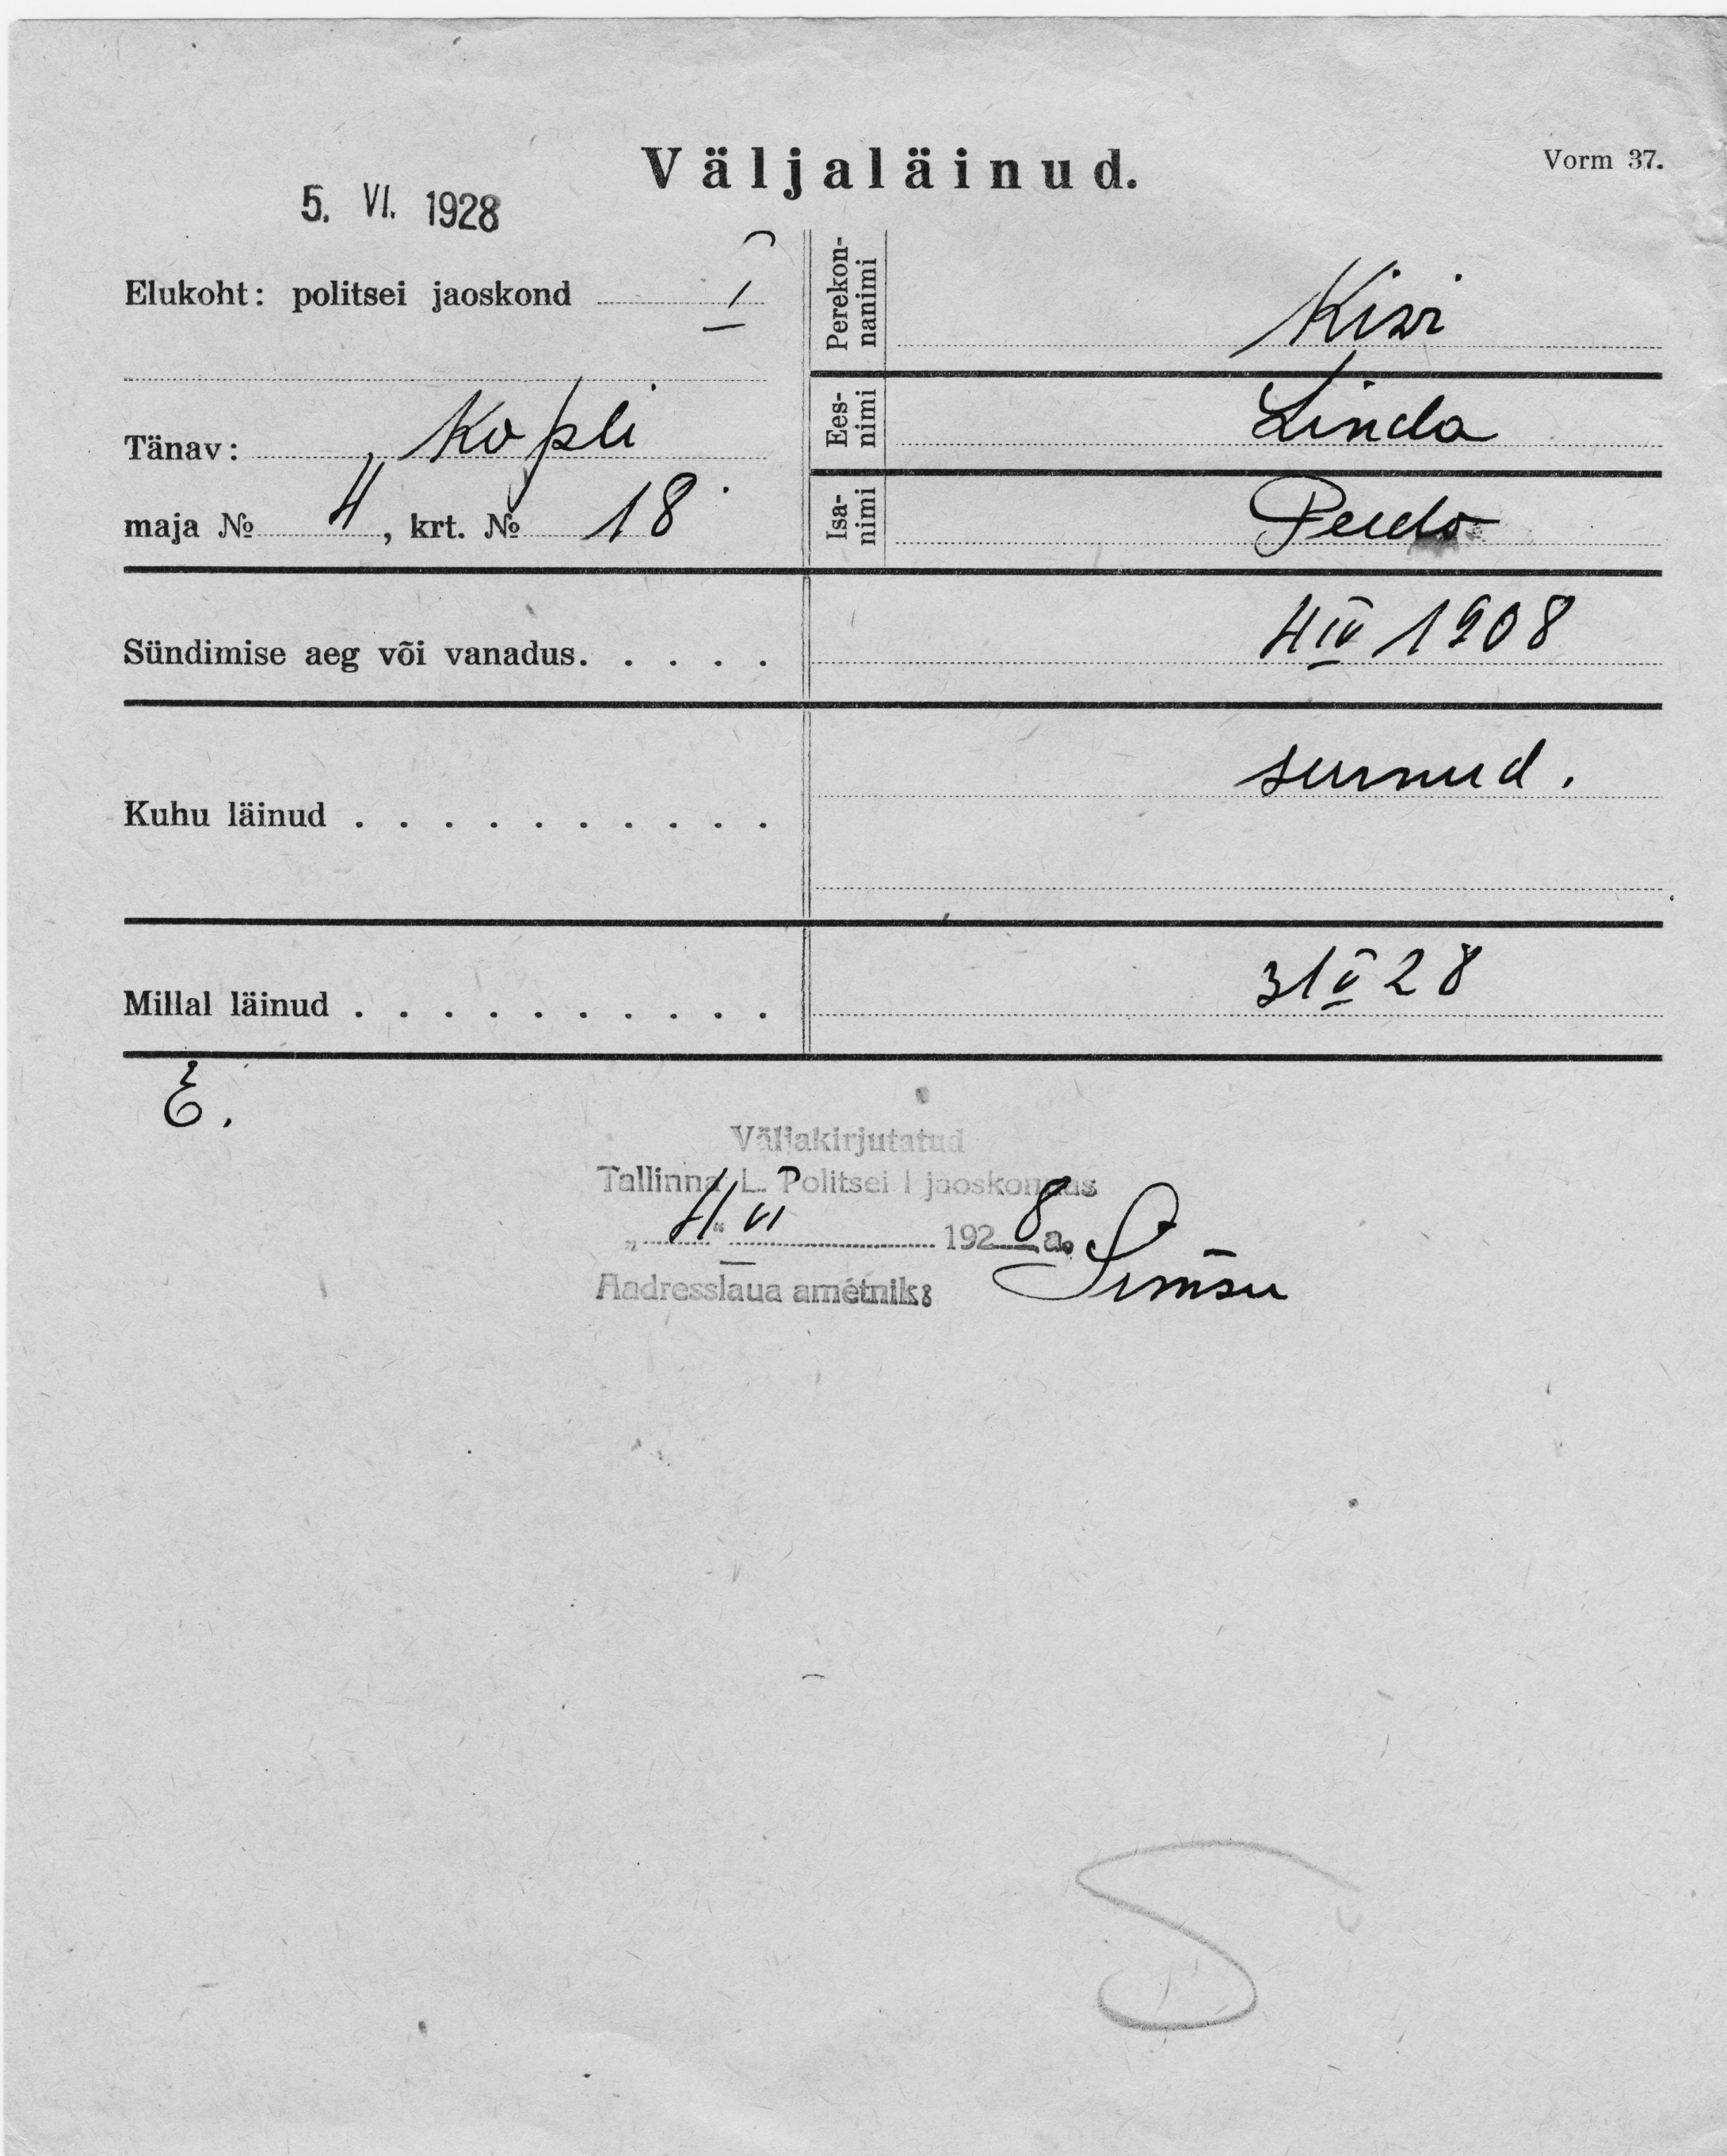 Väljaläinud.
Vorm 37.
5. VI. 1928
Elukoht: politsei jaoskond I
Perekonnanimi Kivi
Tänav: Kopli
Eesnimi Linda
maja № 4, krt. № 18
Isanimi Peedo
Sündimise aeg või vanadus. . . . . 4 IV 1908
Kuhu läinud . . . . . . . . . . surnud.
Millal läinud . . . . . . . . . . 31 V 28
E.
Väljakirjutatud
Tallinna L. Politsei I jaoskonnas
„4" VI 1928 a.
Aadresslaua ametnik: